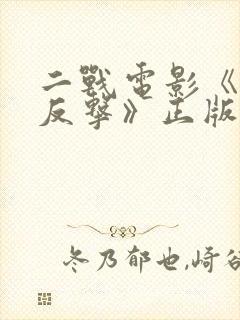 二戰電影《
反擊》正版
冬乃郁也,崎谷